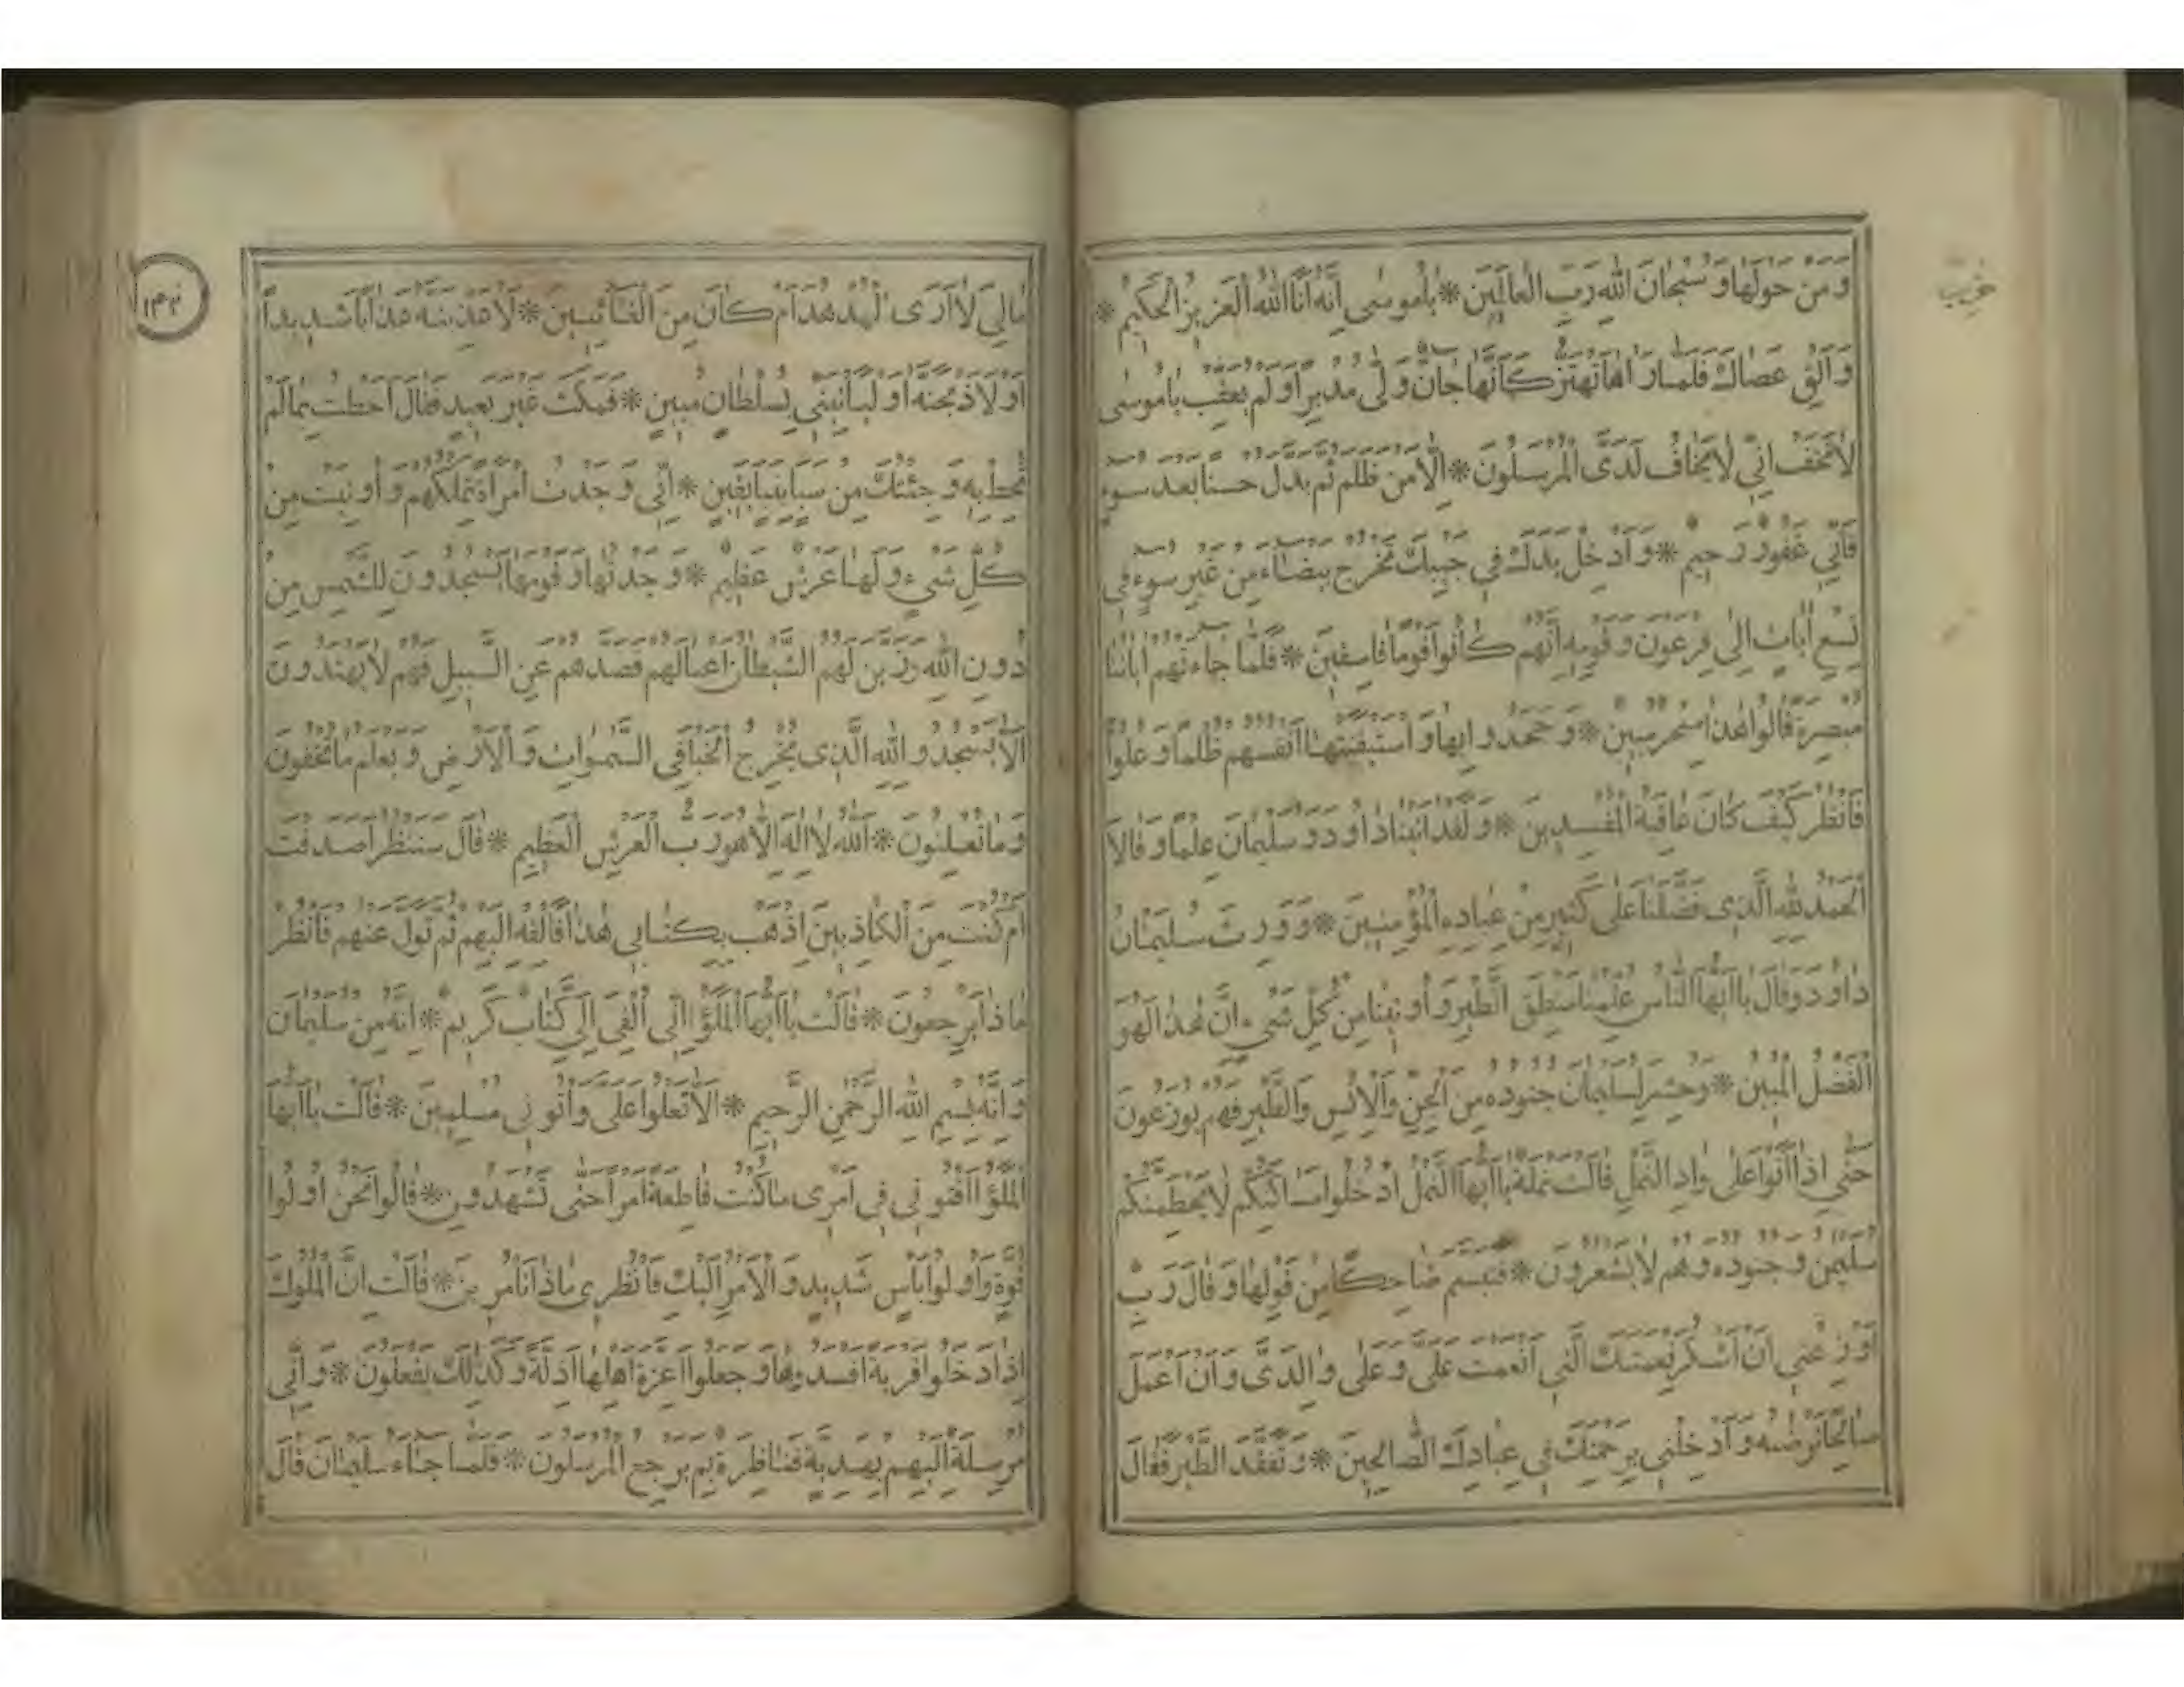 وَمَنْ حَوْلَهَا وَسُبْحَانَ اللّٰهِ رَبِّ الْعَالَمِينَ * يَامُوسٰى اِنَّهُ اَنَا اللّٰهُ الْعَزِيزُ الْحَكِيمُ *
وَاَلْقِ عَصَاكَ فَلَمَّا رَاٰهَا تَهْتَزُّ كَاَنَّهَا جَانٌّ وَلّٰى مُدْبِرًا وَلَمْ يُعَقِّبْ يَامُوسٰى
لَا تَخَفْ اِنِّي لَا يَخَافُ لَدَيَّ الْمُرْسَلُونَ * اِلَّا مَنْ ظَلَمَ ثُمَّ بَدَّلَ حُسْنًا بَعْدَ سُوءٍ
فَاِنِّي غَفُورٌ رَحِيمٌ * وَاَدْخِلْ يَدَكَ فِي جَيْبِكَ تَخْرُجْ بَيْضَاءَ مِنْ غَيْرِ سُوءٍ فِي
تِسْعِ اٰيَاتٍ اِلٰى فِرْعَوْنَ وَقَوْمِهِ اِنَّهُمْ كَانُوا قَوْمًا فَاسِقِينَ * فَلَمَّا جَاءَتْهُمْ اٰيَاتُنَا
مُبْصِرَةً قَالُوا هٰذَا سِحْرٌ مُبِينٌ * وَجَحَدُوا بِهَا وَاسْتَيْقَنَتْهَا اَنْفُسُهُمْ ظُلْمًا وَعُلُوًّا
فَانْظُرْ كَيْفَ كَانَ عَاقِبَةُ الْمُفْسِدِينَ * وَلَقَدْ اٰتَيْنَا دَاوُدَ وَسُلَيْمَانَ عِلْمًا وَقَالَا
الْحَمْدُ لِلّٰهِ الَّذِي فَضَّلَنَا عَلٰى كَثِيرٍ مِنْ عِبَادِهِ الْمُؤْمِنِينَ * وَوَرِثَ سُلَيْمَانُ
دَاوُدَ وَقَالَ يَا اَيُّهَا النَّاسُ عُلِّمْنَا مَنْطِقَ الطَّيْرِ وَاُوتِينَا مِنْ كُلِّ شَيْءٍ اِنَّ هٰذَا لَهُوَ
الْفَضْلُ الْمُبِينُ * وَحُشِرَ لِسُلَيْمَانَ جُنُودُهُ مِنَ الْجِنِّ وَالْاِنْسِ وَالطَّيْرِ فَهُمْ يُوزَعُونَ
حَتّٰى اِذَا اَتَوْا عَلٰى وَادِ النَّمْلِ قَالَتْ نَمْلَةٌ يَا اَيُّهَا النَّمْلُ ادْخُلُوا مَسَاكِنَكُمْ لَا يَحْطِمَنَّكُمْ
سُلَيْمٰنُ وَجُنُودُهُ وَهُمْ لَا يَشْعُرُونَ * فَتَبَسَّمَ ضَاحِكًا مِنْ قَوْلِهَا وَقَالَ رَبِّ
اَوْزِعْنِي اَنْ اَشْكُرَ نِعْمَتَكَ الَّتِي اَنْعَمْتَ عَلَيَّ وَعَلٰى وَالِدَيَّ وَاَنْ اَعْمَلَ
صَالِحًا تَرْضٰيهُ وَاَدْخِلْنِي بِرَحْمَتِكَ فِي عِبَادِكَ الصَّالِحِينَ * وَتَفَقَّدَ الطَّيْرَ فَقَالَ
١٣٢
مَالِيَ لَا اَرَى الْهُدْهُدَ اَمْ كَانَ مِنَ الْغَائِبِينَ * لَاُعَذِّبَنَّهُ عَذَابًا شَدِيدًا
اَوْ لَاَذْبَحَنَّهُ اَوْ لَيَاْتِيَنِّي بِسُلْطَانٍ مُبِينٍ * فَمَكَثَ غَيْرَ بَعِيدٍ فَقَالَ اَحَطْتُ بِمَا لَمْ
تُحِطْ بِهِ وَجِئْتُكَ مِنْ سَبَاٍ بِنَبَاٍ يَقِينٍ * اِنِّي وَجَدْتُ امْرَاَةً تَمْلِكُهُمْ وَاُوتِيَتْ مِنْ
كُلِّ شَيْءٍ وَلَهَا عَرْشٌ عَظِيمٌ * وَجَدْتُهَا وَقَوْمَهَا يَسْجُدُونَ لِلشَّمْسِ مِنْ
دُونِ اللّٰهِ وَزَيَّنَ لَهُمُ الشَّيْطَانُ اَعْمَالَهُمْ فَصَدَّهُمْ عَنِ السَّبِيلِ فَهُمْ لَا يَهْتَدُونَ
اَلَّا يَسْجُدُوا لِلّٰهِ الَّذِي يُخْرِجُ الْخَبْاَ فِي السَّمٰوَاتِ وَالْاَرْضِ وَيَعْلَمُ مَا تُخْفُونَ
وَمَا تُعْلِنُونَ * اَللّٰهُ لَا اِلٰهَ اِلَّا هُوَ رَبُّ الْعَرْشِ الْعَظِيمِ * قَالَ سَنَنْظُرُ اَصَدَقْتَ
اَمْ كُنْتَ مِنَ الْكَاذِبِينَ اِذْهَبْ بِكِتَابِي هٰذَا فَاَلْقِهْ اِلَيْهِمْ ثُمَّ تَوَلَّ عَنْهُمْ فَانْظُرْ
مَاذَا يَرْجِعُونَ * قَالَتْ يَا اَيُّهَا الْمَلَؤُا اِنِّي اُلْقِيَ اِلَيَّ كِتَابٌ كَرِيمٌ * اِنَّهُ مِنْ سُلَيْمَانَ
وَاِنَّهُ بِسْمِ اللّٰهِ الرَّحْمٰنِ الرَّحِيمِ * اَلَّا تَعْلُوا عَلَيَّ وَاْتُونِي مُسْلِمِينَ * قَالَتْ يَا اَيُّهَا
الْمَلَؤُا اَفْتُونِي فِي اَمْرِي مَا كُنْتُ قَاطِعَةً اَمْرًا حَتّٰى تَشْهَدُونِ * قَالُوا نَحْنُ اُولُوا
قُوَّةٍ وَاُولُوا بَاْسٍ شَدِيدٍ وَالْاَمْرُ اِلَيْكِ فَانْظُرِي مَاذَا تَاْمُرِينَ * قَالَتْ اِنَّ الْمُلُوكَ
اِذَا دَخَلُوا قَرْيَةً اَفْسَدُوهَا وَجَعَلُوا اَعِزَّةَ اَهْلِهَا اَذِلَّةً وَكَذٰلِكَ يَفْعَلُونَ * وَاِنِّي
مُرْسِلَةٌ اِلَيْهِمْ بِهَدِيَّةٍ فَنَاظِرَةٌ بِمَ يَرْجِعُ الْمُرْسَلُونَ * فَلَمَّا جَاءَ سُلَيْمَانَ قَالَ